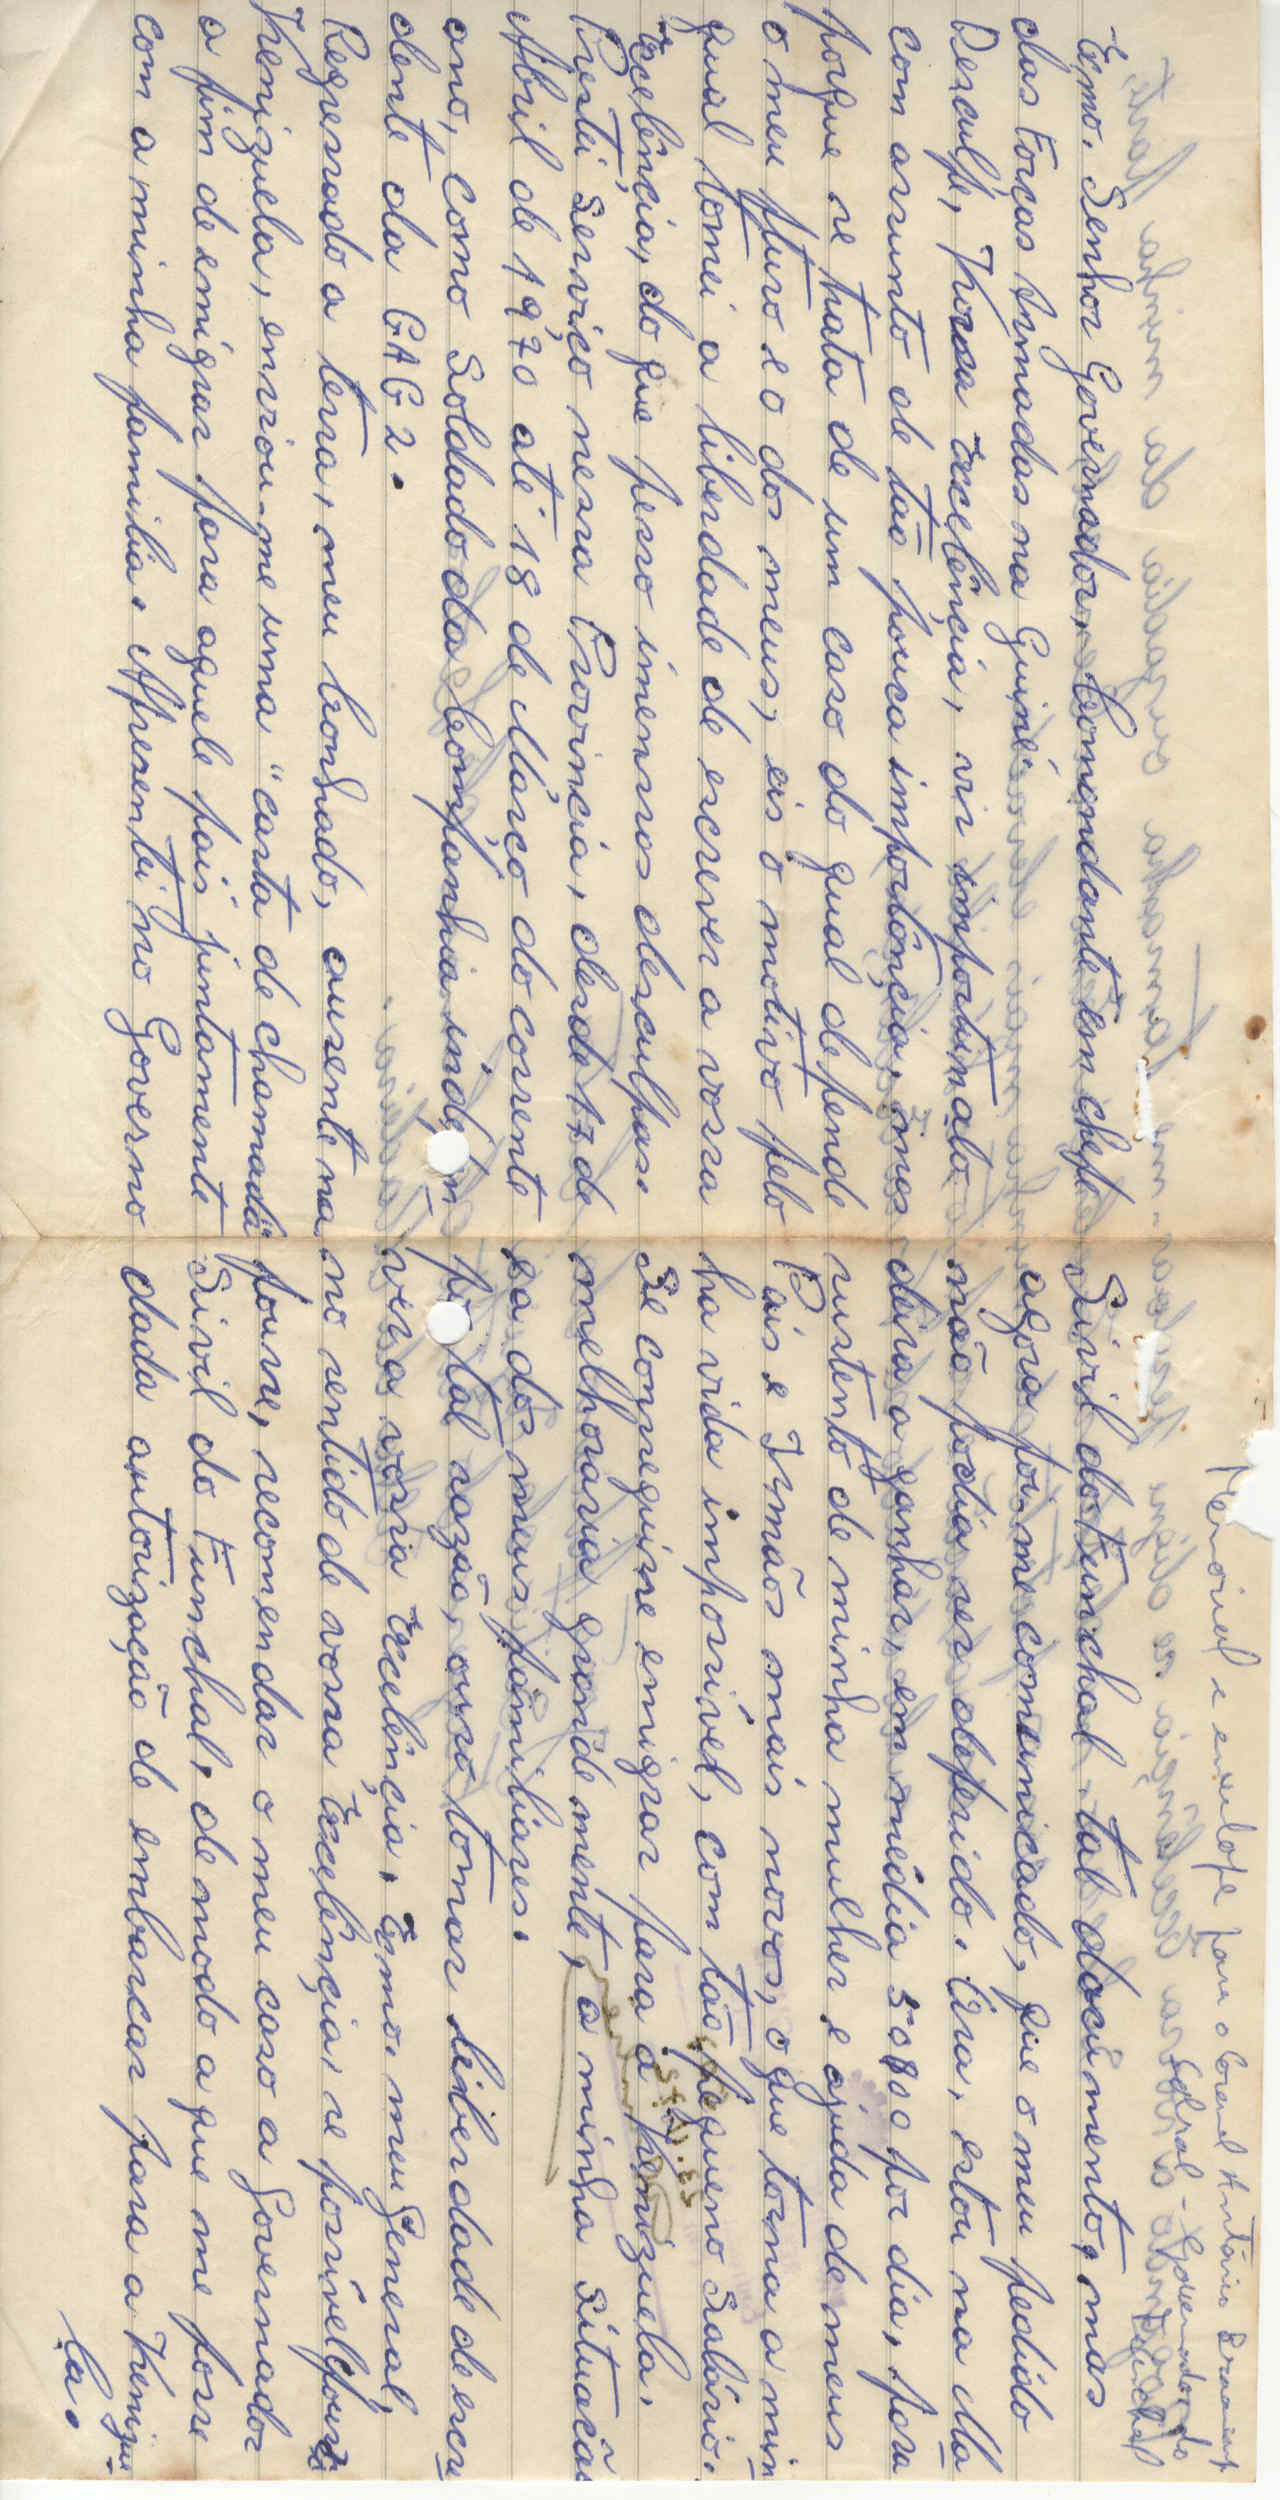 e envelope para o Coronel António Braancamp
Sobral - Governador do
Funchal
Exmo. Senhor Governador, Comandante em chefe
das Forças Armadas na Guiné
Desculpe, Vossa Excelência, vir importuná-lo
com assunto de tão pouca importância, mas
porque se trata de um caso do qual depende
o meu futuro e o dos meus, eis o motivo pelo
qual tomei a liberdade de escrever a vossa
Excelência, do que peso imensas desculpas.
Prestei Serviço nessa Província, desde 17 de
Abril de 1970 até 18 de Março do corrente
ano, como Soldado da Companhia indepen
dente da CAG 2.
Regressado a terra, meu cunhado, ausente na
Venizuela, enviou-me uma "carta de chamada"
a fim de emigrar para aquele país juntamente
com a minha familia. Apresentei no Governo
Sivil do Funchal tal documento, mas
agora foi-me comunicado, que o meu pedido
não podia ser deferido. Ora, estou na Ma
deira a ganhar, em média 50$00 por dia, para
sustento de minha mulher e ajuda de meus
Pais e Irmãos mais novos, o que torna a min
ha vida impossivel, com tão pequeno Salário.
Se conseguisse emigrar para a Venizuela,
melhoraria grandemente, a minha Situação
e a dos meus familiares.
por tal razão, ouso tomar liberdade de escre
ver a vossa Excelência, Exmo. meu General,
no sentido de vossa Excelência, se possivel fosse
fosse, recomendar o meu caso a Governador
Sivil do Funchal, de modo a que me fosse
dada autorização de embarcar para a Venizue
la.